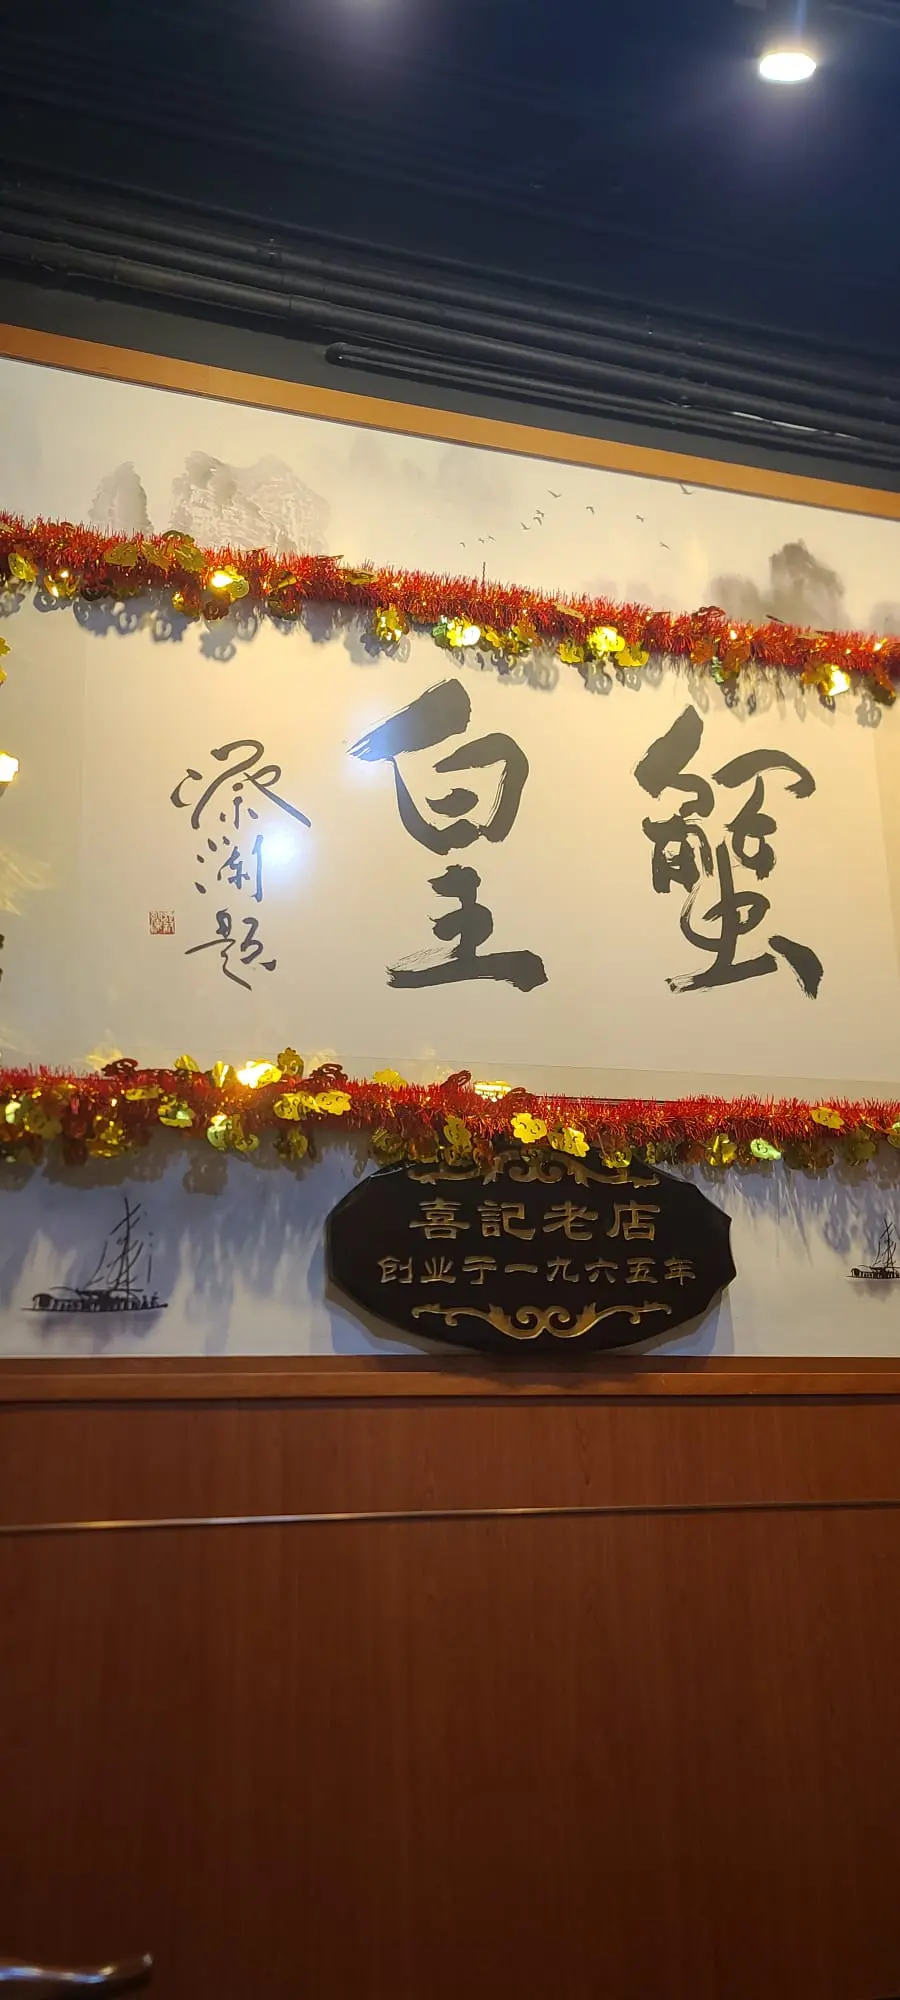 蟹皇
蔡瀾题
喜記老店
创业于一九六五年